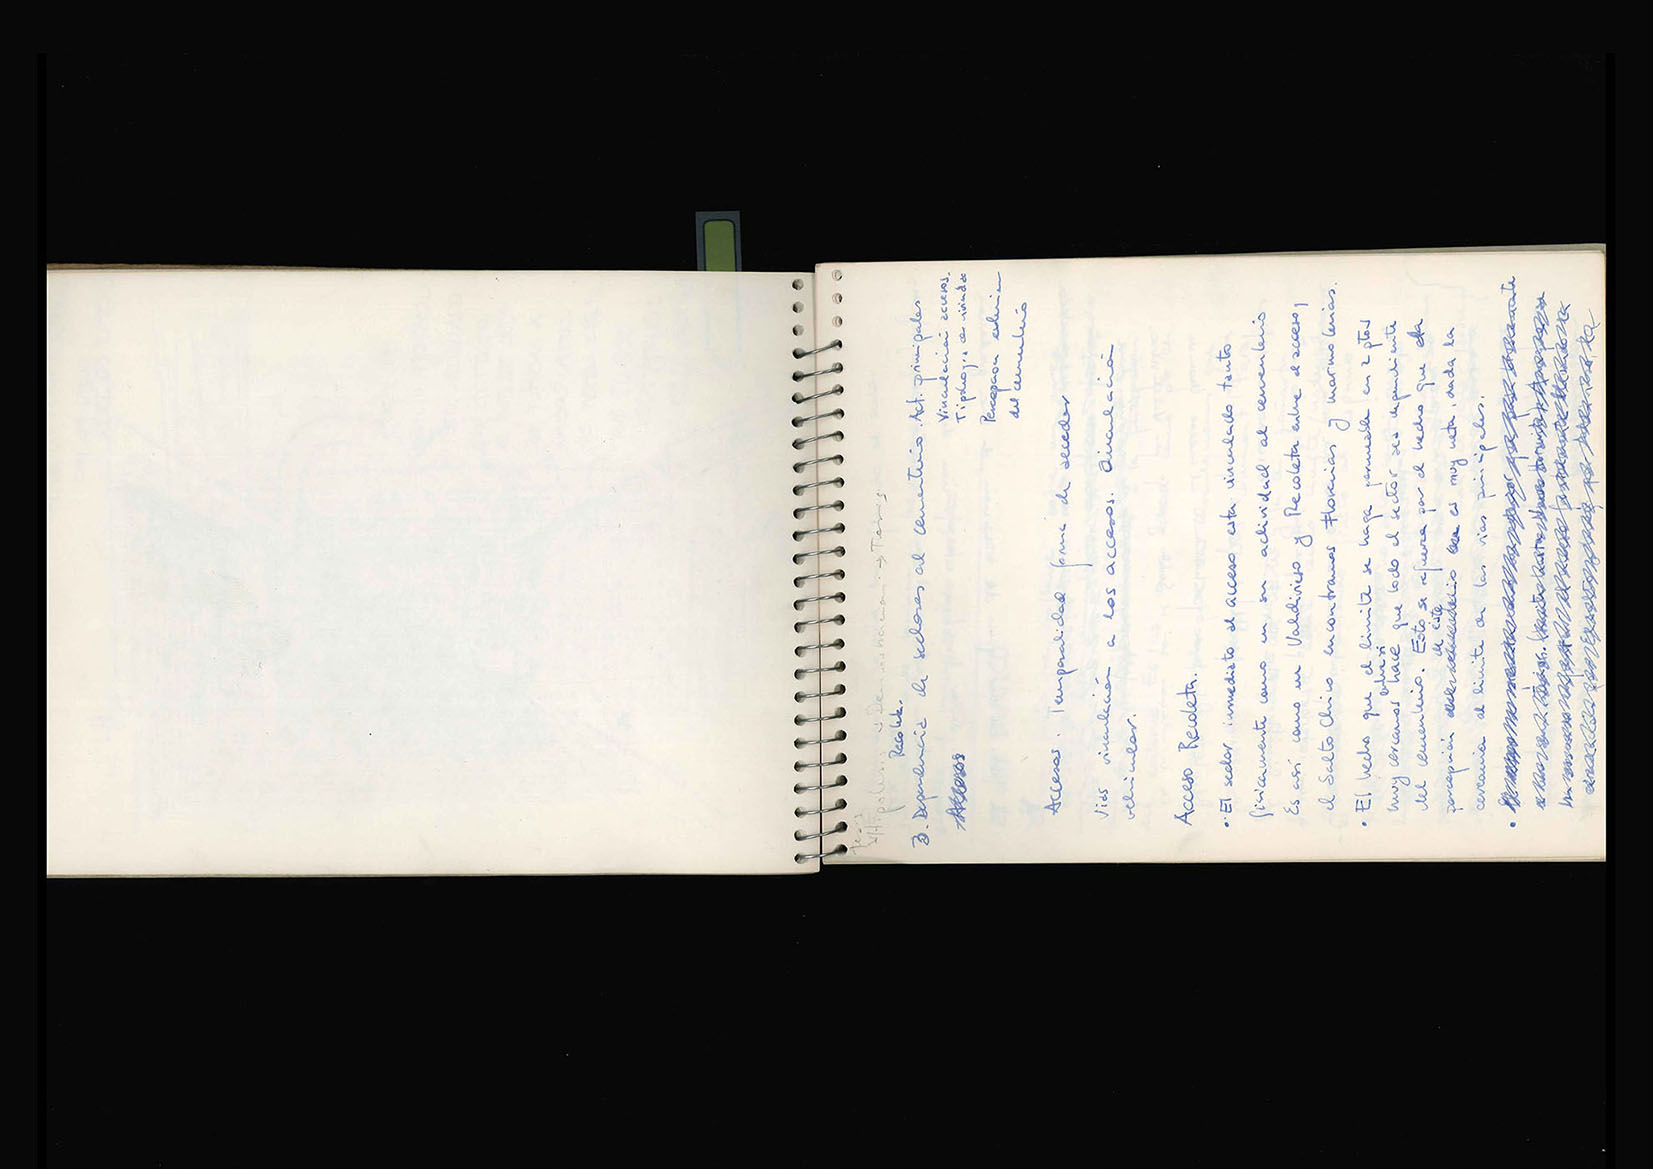 Hipótesis → Demostración → Tesis
Recoleta.
D. Dependencia de sectores al cementerio. Act. principales
Vinculación accesos.
Tipología de viviendas
Percepción exterior
del cementerio
Accesos
Accesos. Temporalidad forma de acceder
Vías vinculación a los accesos. Circulación
vehicular.
Acceso Recoleta.
• El sector inmediato al acceso esta vinculado tanto
fisicamente como en su actividad al cementerio
Es así como en Valdivieso y Recoleta entre el acceso y
el Salto Chico encontramos Florerias y marmolerias.
• El hecho que el límite se haga permeable en 2 ptos
muy cercanos entre sí hace que todo el sector sea dependiente
del cementerio. Esto se refuerza por el hecho que la
percepción de este es muy neta, dada la
cercania al límite de las vias principales.